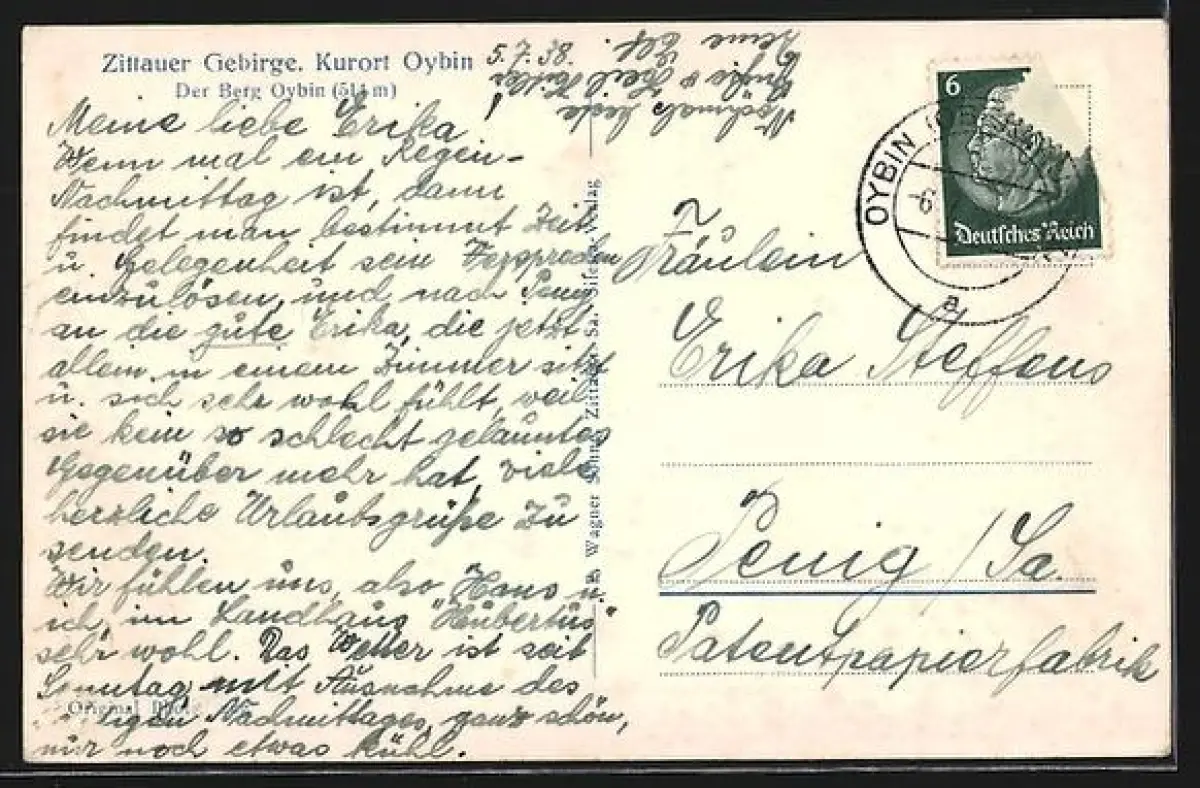 Zittauer Gebirge. Kurort Oybin
Der Berg Oybin (514 m)
5.7.38.
Meine liebe Erika!
Wenn mal ein Regen-
Nachmittag ist, dann
findet man bestimmt Zeit
u. Gelegenheit sein Versprechen
einzulösen, und nach Penig
an die gute Erika, die jetzt
allein in einem Zimmer sitzt
u. sich sehr wohl fühlt, weil
sie kein so schlecht gelauntes
Gegenüber mehr hat, viele
herzliche Urlaubsgrüße zu
senden.
Wir fühlen uns, also Hans u.
ich, im Landhaus "Hubertus"
sehr wohl. Das Wetter ist seit
Sonntag mit Ausnahme des
Nachmittages, ganz schön,
nur noch etwas kühl.
Nochmals beste
Grüße & Heil Hitler
Deine
Original
Wagner Zittau Sa. Verlag
6
Deutsches Reich
OYBIN
a
Fräulein
Erika Steffens
Penig / Sa.
Patentpapierfabrik